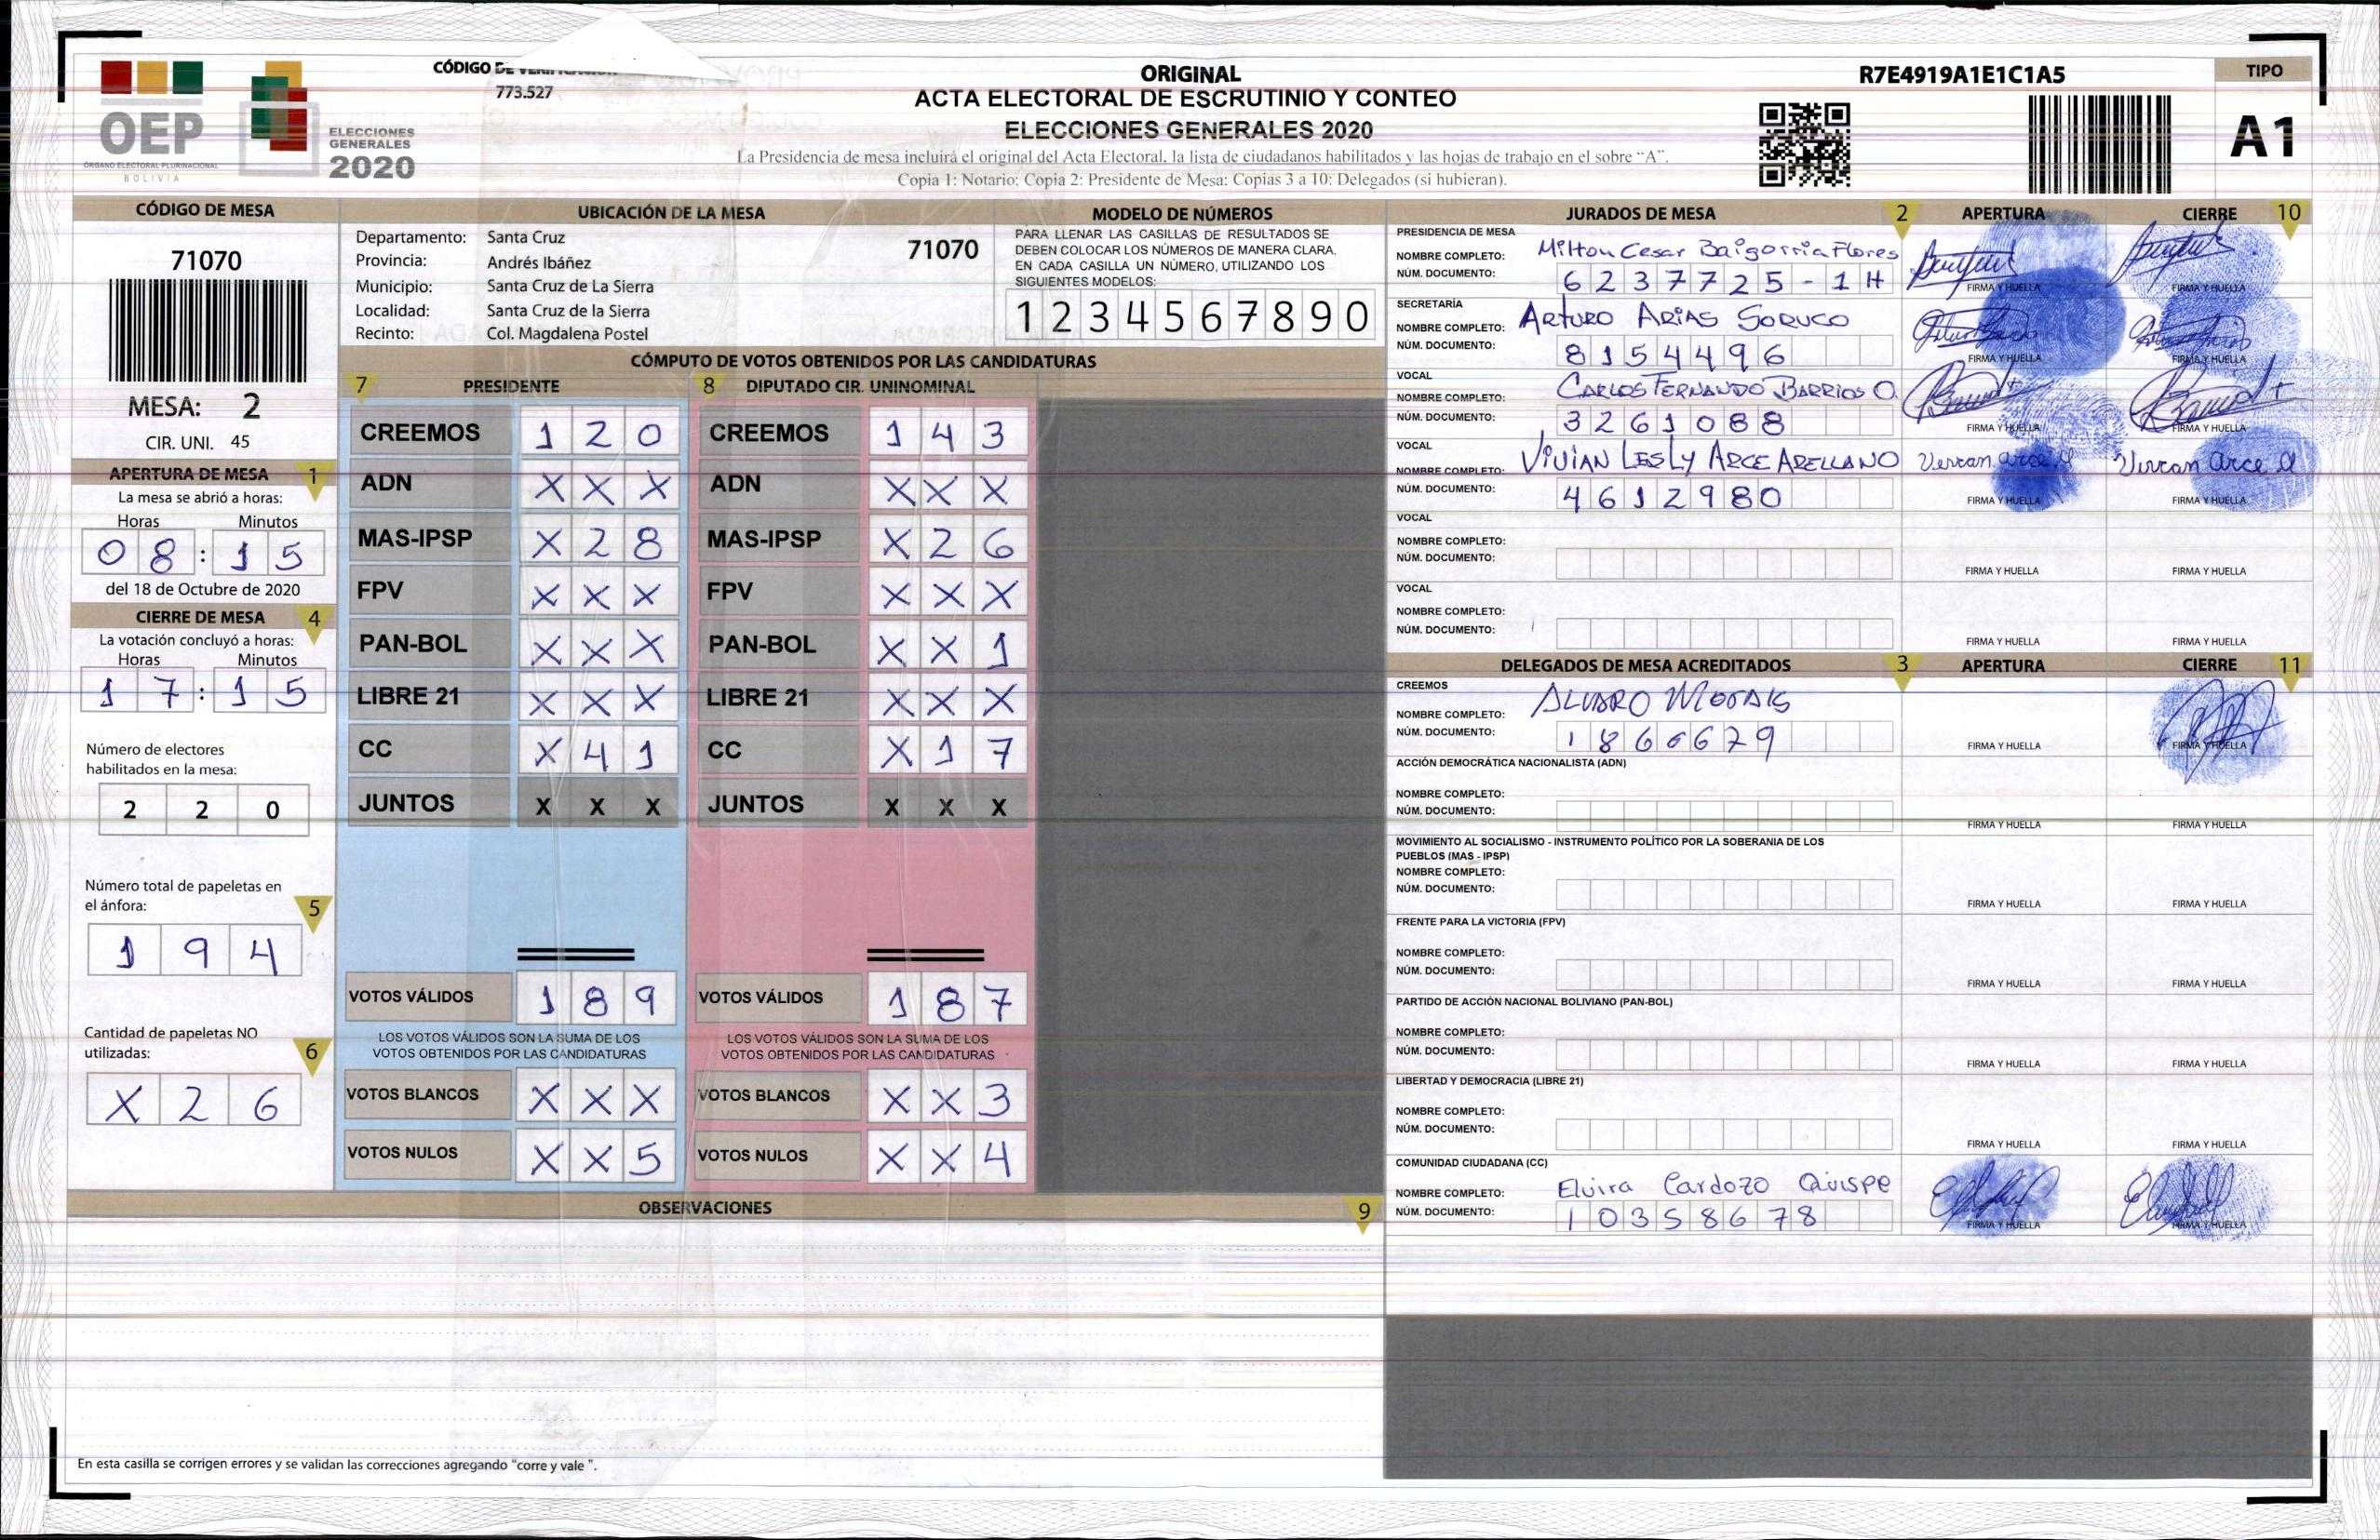 OEP
ÓRGANO ELECTORAL PLURINACIONAL
BOLIVIA
ELECCIONES
GENERALES
2020
CÓDIGO DE
773.527
ORIGINAL
ACTA ELECTORAL DE ESCRUTINIO Y CONTEO
ELECCIONES GENERALES 2020
La Presidencia de mesa incluirá el original del Acta Electoral, la lista de ciudadanos habilitados y las hojas de trabajo en el sobre “A”.
Copia 1: Notario; Copia 2: Presidente de Mesa: Copias 3 a 10: Delegados (si hubieran).
R7E4919A1E1C1A5
TIPO
A1
CÓDIGO DE MESA
71070
MESA: 2
CIR. UNI. 45
APERTURA DE MESA 1
La mesa se abrió a horas:
Horas Minutos
08:15
del 18 de Octubre de 2020
CIERRE DE MESA 4
La votación concluyó a horas:
Horas Minutos
17:15
Número de electores
habilitados en la mesa:
2 2 0
Número total de papeletas en
el ánfora: 5
1 9 4
Cantidad de papeletas NO
utilizadas: 6
X 2 6
UBICACIÓN DE LA MESA
Departamento: Santa Cruz 71070
Provincia: Andrés Ibáñez
Municipio: Santa Cruz de La Sierra
Localidad: Santa Cruz de la Sierra
Recinto: Col. Magdalena Postel
MODELO DE NÚMEROS
PARA LLENAR LAS CASILLAS DE RESULTADOS SE
DEBEN COLOCAR LOS NÚMEROS DE MANERA CLARA.
EN CADA CASILLA UN NÚMERO, UTILIZANDO LOS
SIGUIENTES MODELOS:
1 2 3 4 5 6 7 8 9 0
CÓMPUTO DE VOTOS OBTENIDOS POR LAS CANDIDATURAS
7 PRESIDENTE 8 DIPUTADO CIR. UNINOMINAL
CREEMOS 1 2 0 CREEMOS 1 4 3
ADN X X X ADN X X X
MAS-IPSP X 2 8 MAS-IPSP X 2 6
FPV X X X FPV X X X
PAN-BOL X X X PAN-BOL X X 1
LIBRE 21 X X X LIBRE 21 X X X
CC X 4 1 CC X 1 7
JUNTOS X X X JUNTOS X X X
VOTOS VÁLIDOS 1 8 9 VOTOS VÁLIDOS 1 8 7
LOS VOTOS VÁLIDOS SON LA SUMA DE LOS LOS VOTOS VÁLIDOS SON LA SUMA DE LOS
VOTOS OBTENIDOS POR LAS CANDIDATURAS VOTOS OBTENIDOS POR LAS CANDIDATURAS
VOTOS BLANCOS X X X VOTOS BLANCOS X X 3
VOTOS NULOS X X 5 VOTOS NULOS X X 4
OBSERVACIONES 9
En esta casilla se corrigen errores y se validan las correcciones agregando "corre y vale ".
JURADOS DE MESA 2 APERTURA CIERRE 10
PRESIDENCIA DE MESA
NOMBRE COMPLETO: Milton Cesar Baigorria Flores
NÚM. DOCUMENTO: 6237725-1H FIRMA Y HUELLA FIRMA Y HUELLA
SECRETARÍA
NOMBRE COMPLETO: ARTURO ARIAS SORUCO
NÚM. DOCUMENTO: 8154496 FIRMA Y HUELLA FIRMA Y HUELLA
VOCAL
NOMBRE COMPLETO: CARLOS FERNANDO BARRIOS O.
NÚM. DOCUMENTO: 3261088 FIRMA Y HUELLA FIRMA Y HUELLA
VOCAL
NOMBRE COMPLETO: VIVIAN LESLY ARCE ARELLANO
NÚM. DOCUMENTO: 4612980 FIRMA Y HUELLA FIRMA Y HUELLA
VOCAL
NOMBRE COMPLETO:
NÚM. DOCUMENTO: FIRMA Y HUELLA FIRMA Y HUELLA
VOCAL
NOMBRE COMPLETO:
NÚM. DOCUMENTO: FIRMA Y HUELLA FIRMA Y HUELLA
DELEGADOS DE MESA ACREDITADOS 3 APERTURA CIERRE 11
CREEMOS
NOMBRE COMPLETO: ALVARO
NÚM. DOCUMENTO: 1866679 FIRMA Y HUELLA FIRMA Y HUELLA
ACCIÓN DEMOCRÁTICA NACIONALISTA (ADN)
NOMBRE COMPLETO:
NÚM. DOCUMENTO: FIRMA Y HUELLA FIRMA Y HUELLA
MOVIMIENTO AL SOCIALISMO - INSTRUMENTO POLÍTICO POR LA SOBERANIA DE LOS
PUEBLOS (MAS - IPSP)
NOMBRE COMPLETO:
NÚM. DOCUMENTO: FIRMA Y HUELLA FIRMA Y HUELLA
FRENTE PARA LA VICTORIA (FPV)
NOMBRE COMPLETO:
NÚM. DOCUMENTO: FIRMA Y HUELLA FIRMA Y HUELLA
PARTIDO DE ACCIÓN NACIONAL BOLIVIANO (PAN-BOL)
NOMBRE COMPLETO:
NÚM. DOCUMENTO: FIRMA Y HUELLA FIRMA Y HUELLA
LIBERTAD Y DEMOCRACIA (LIBRE 21)
NOMBRE COMPLETO:
NÚM. DOCUMENTO: FIRMA Y HUELLA FIRMA Y HUELLA
COMUNIDAD CIUDADANA (CC)
NOMBRE COMPLETO: Elvira Cardozo Quispe
NÚM. DOCUMENTO: 10358678 FIRMA Y HUELLA FIRMA Y HUELLA